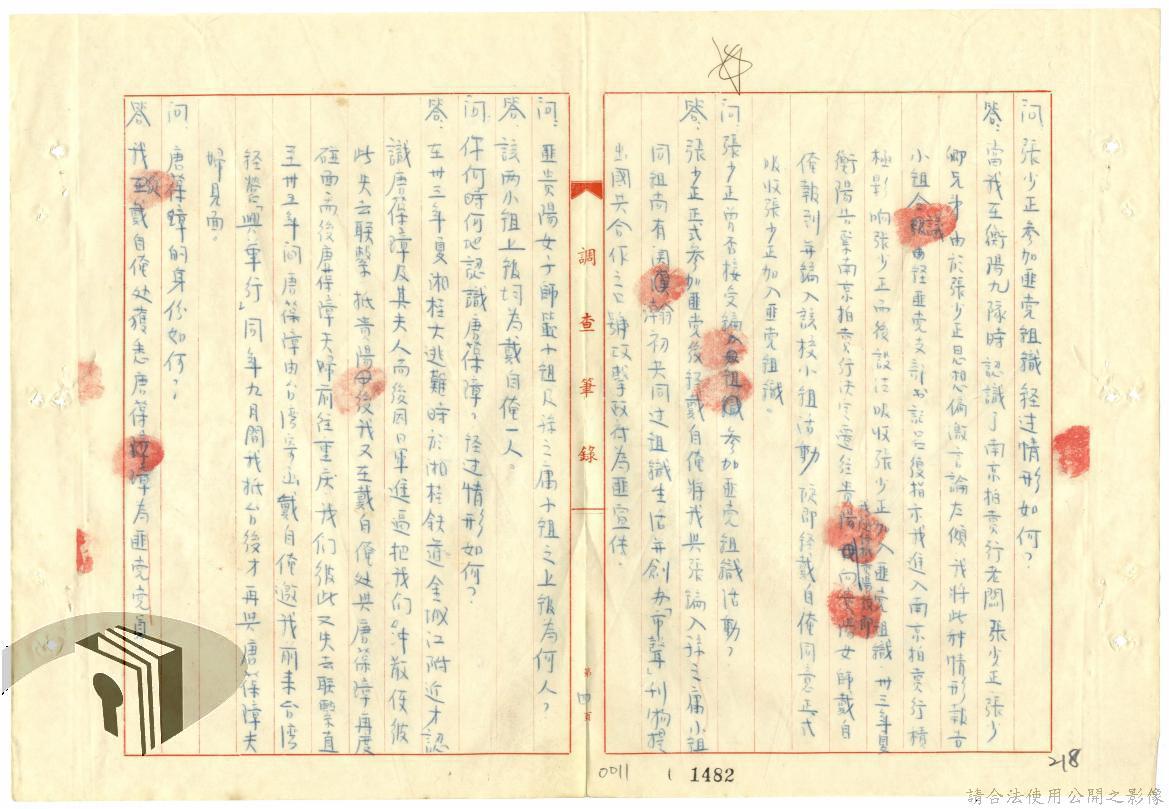 問：張少正參加匪党組織経过情形如何？
答：當我在衡陽九隊時認識了南京拍賣行老闆張少正張少
卿兄弟由於張少正思想偏激言論左傾我將此种情形報告
小組会議由経匪党支部書記呂俊指示我進入南京拍賣行積
極影响張少正而後設法吸收張少正加入匪党組織卅三年夏
衡陽告緊南京拍賣行決定遷往貴陽我向貴陽女師戴自
俺報到並編入該校小組活動後即経戴自俺同意正式
吸收張少正加入匪党組織。
問：張少正曾否接受編組參加匪党組織活動？
答：張少正正式參加匪党後経戴自俺將我與張編入孫之庸小組
同組尚有周漢翰初共同过組織生活並創办「市聲」刊物提
出國共合作之口號攻擊政府為匪宣傳。
調查筆錄
第四頁
問：匪貴陽女子師範小組及孫之庸小組之上級為何人？
答：該兩小組上級均為戴自俺一人。
問：你何時何地認識唐葆障？経过情形如何？
答：在卅三年夏湘桂大逃難時於湘桂鉄道金城江附近才認
識唐葆障及其夫人而後因日軍進逼把我们冲散使彼
此失去联繫抵貴陽後我又在戴自俺處與唐葆障再度
碰面而後唐葆障夫婦前往重庆我们彼此又失去联繫直
至卅五年间唐葆障由台湾寄函戴自俺邀我前来台湾
経營「興華行」同年九月間我抵台後才再與唐葆障夫
婦見面。
問：唐葆障的身份如何？
答：我在戴自俺处獲悉唐葆障為匪党党員
0011
1482
218
請合法使用公開之影像